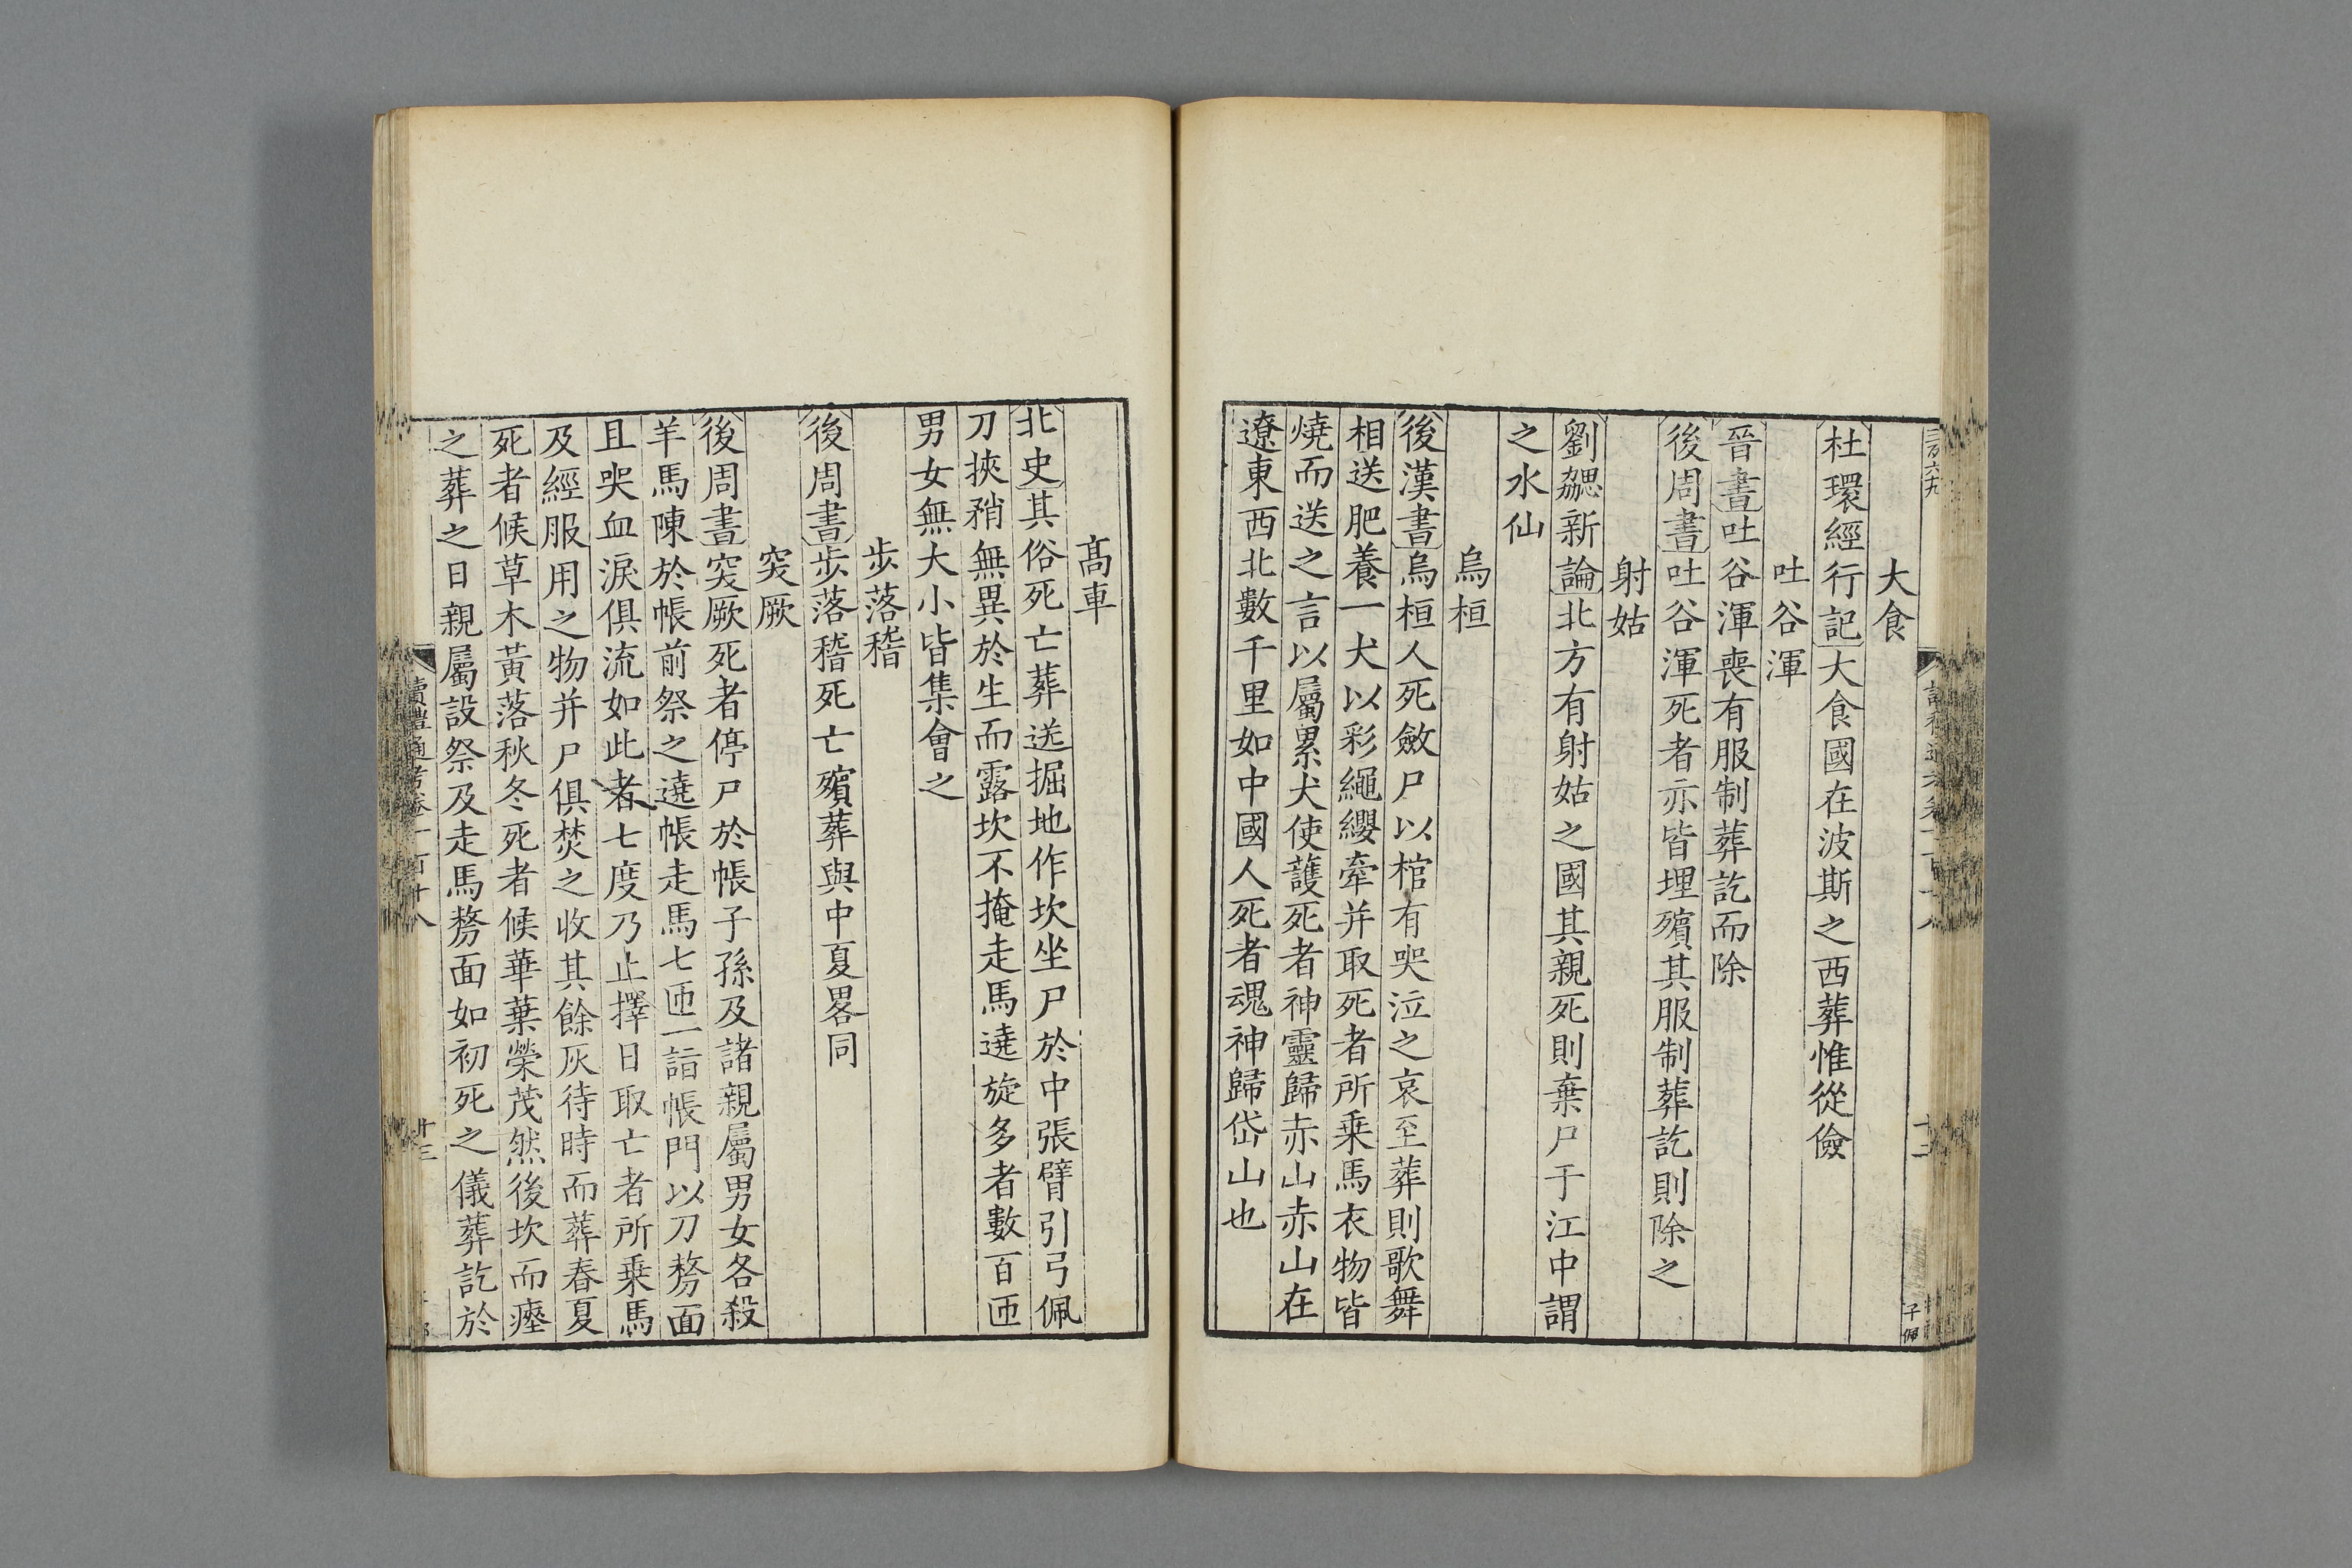 大食
杜環經行記大食國在波斯之西葬惟從儉
吐谷渾
晉書吐谷渾喪有服制葬訖而除
後周書吐谷渾死者亦皆埋殯其服制葬訖則除之
射姑
劉勰新論北方有射姑之國其親死則棄尸于江中謂
之水仙
烏桓
後漢書烏桓人死斂尸以棺有哭泣之哀至葬則歌舞
相送肥養一犬以彩繩纓牽并取死者所乗馬衣物皆
燒而送之言以屬累犬使護死者神靈歸赤山赤山在
遼東西北數千里如中國人死者魂神歸岱山也
髙車
北史其俗死亡葬送掘地作坎坐尸於中張臂引弓佩
刀挾矟無異於生而露坎不掩走馬遶旋多者數百匝
男女無大小皆集會之
步落稽
後周書步落稽死亡殯葬與中夏畧同
突厥
後周書突厥死者停尸於帳子孫及諸親屬男女各殺
羊馬陳於帳前祭之遶帳走馬七匝一詣帳門以刀剺面
且哭血淚俱流如此者七度乃止擇日取亡者所乗馬
及經服用之物并尸俱焚之收其餘灰待時而葬春夏
死者候草木黃落秋冬死者候華葉榮茂然後坎而瘞
之葬之日親屬設祭及走馬剺面如初死之儀葬訖於
讀禮通考卷一百十八